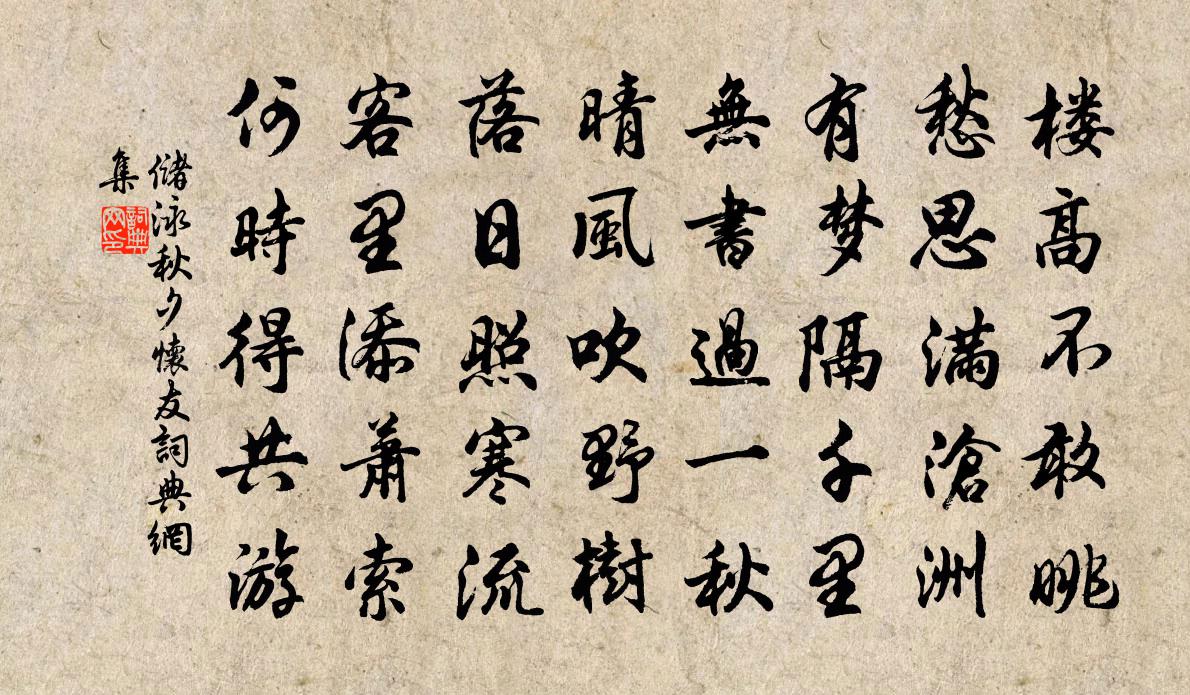 楼高不敢眺
愁思满滄洲
有梦隔千里
無書過一秋
晴風吹野樹
落日照寒流
客里添蕭索
何時得共游
儲泳秋夕懷友詞典網
集
詞典
网印